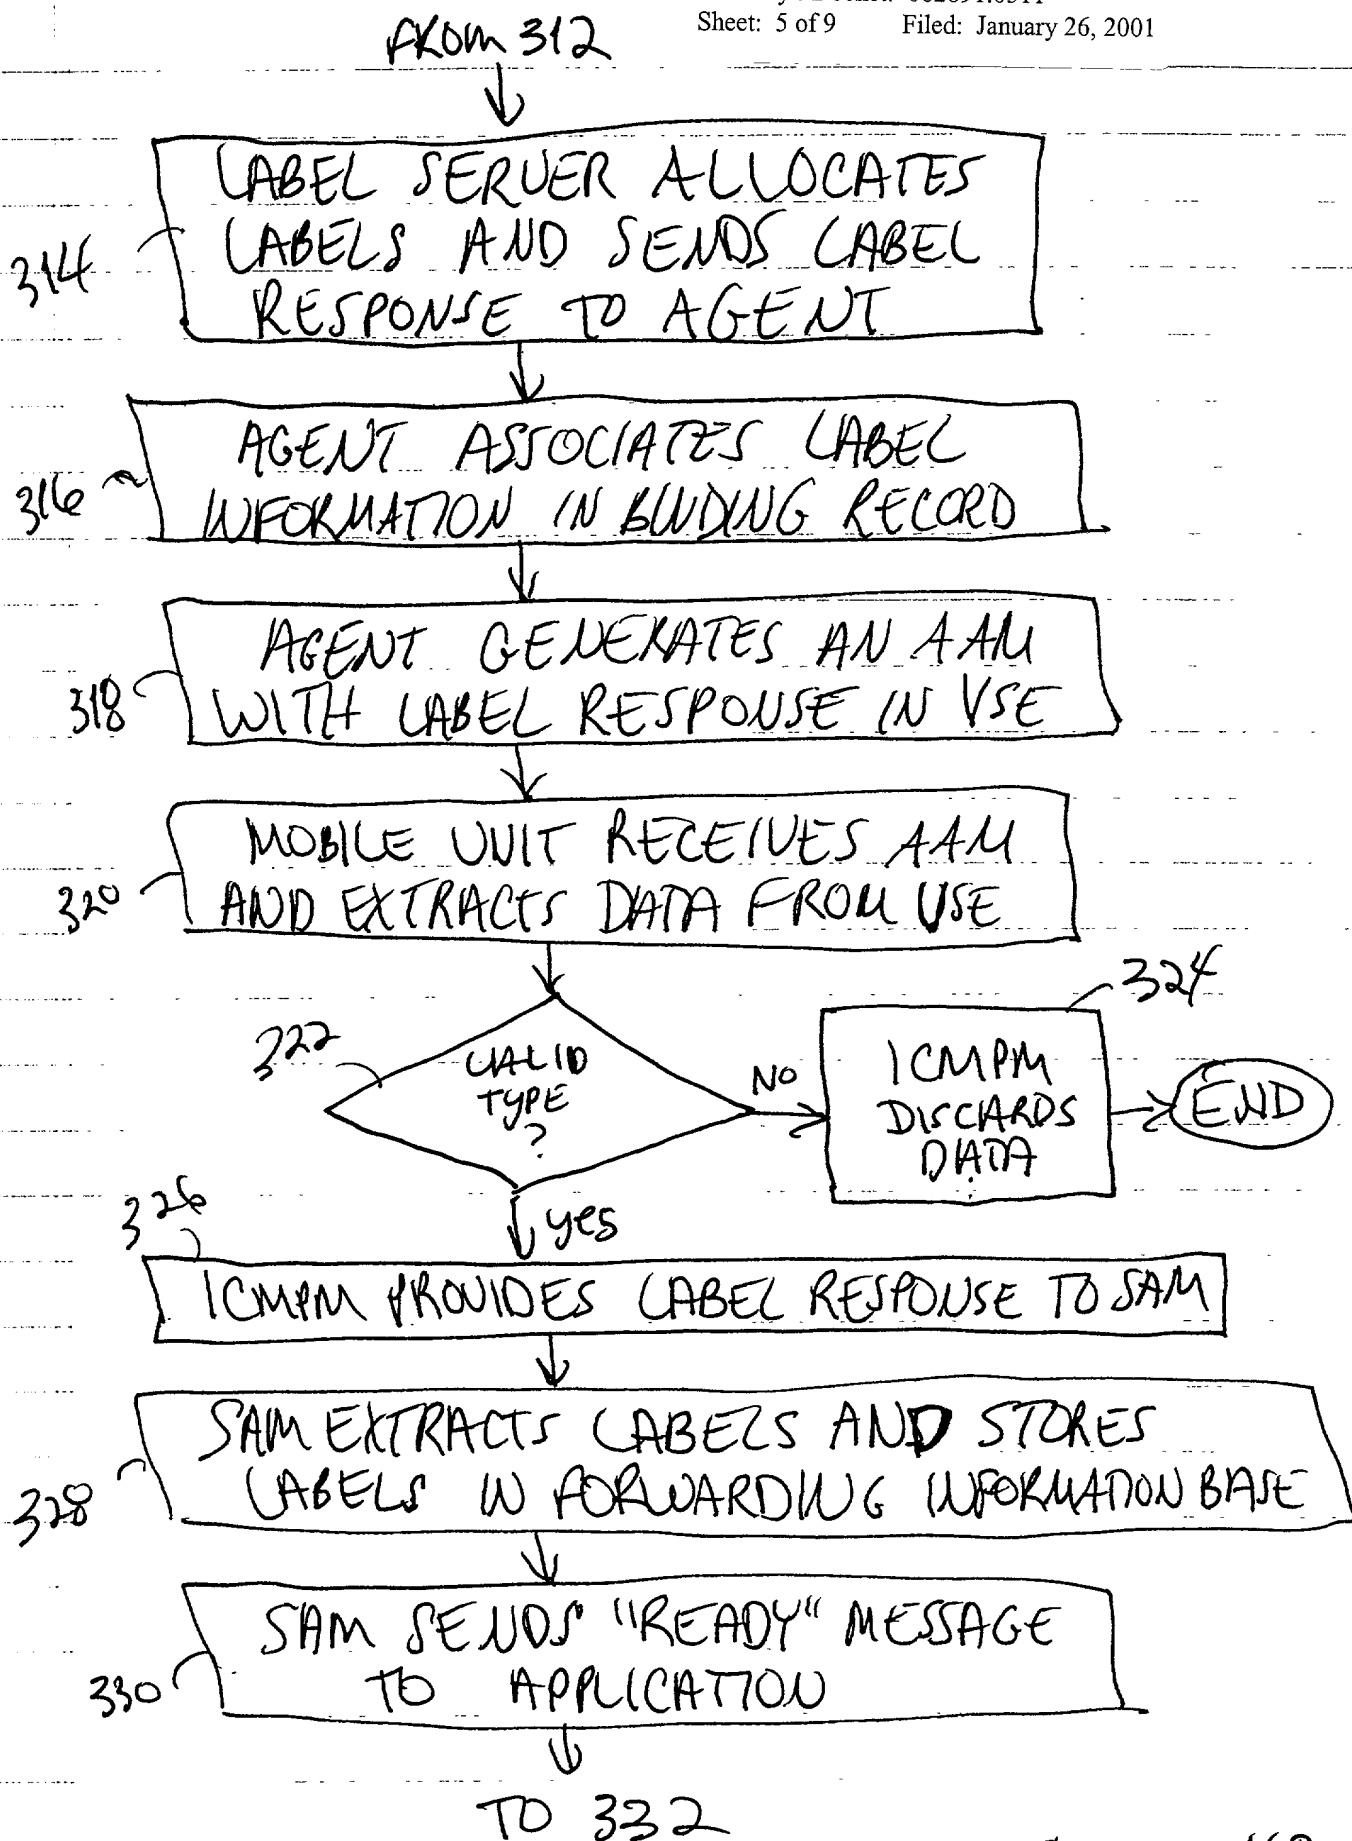 Sheet: 5 of 9 Filed: January 26, 2001
FROM 312
LABEL SERVER ALLOCATES
LABELS AND SENDS LABEL
RESPONSE TO AGENT
314
AGENT ASSOCIATES LABEL
INFORMATION IN BINDING RECORD
316
AGENT GENERATES AN AAM
WITH LABEL RESPONSE IN VSE
318
MOBILE UNIT RECEIVES AAM
AND EXTRACTS DATA FROM VSE
320
322
VALID
TYPE
?
NO
324
ICMPM
DISCARDS
DATA
END
yes
326
ICMPM PROVIDES LABEL RESPONSE TO SAM
SAM EXTRACTS LABELS AND STORES
LABELS IN FORWARDING INFORMATION BASE
328
SAM SENDS "READY" MESSAGE
TO APPLICATION
330
TO 332